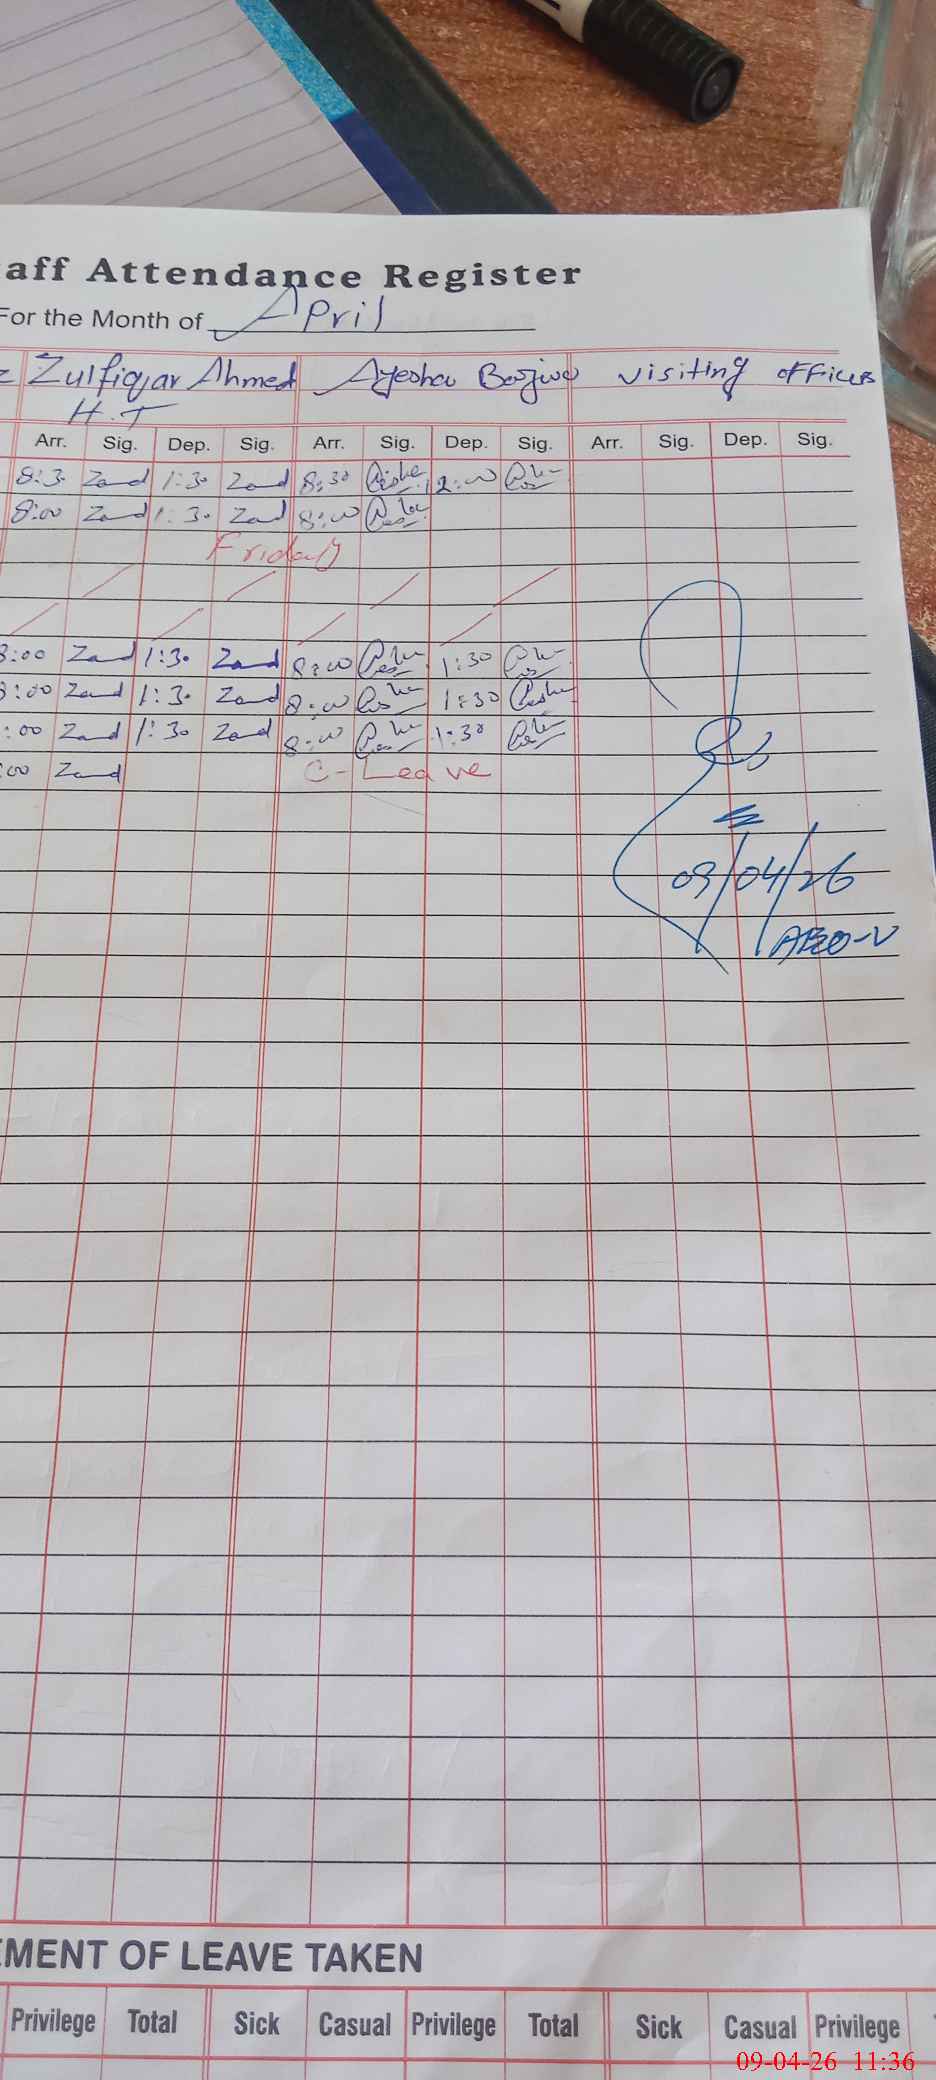 aff Attendance Register
For the Month of April
Zulfiqar Ahmed Ayesha Bajwa visiting officers
H.T
Arr. Sig. Dep. Sig. Arr. Sig. Dep. Sig. Arr. Sig. Dep. Sig.
8:3 1:30 8:30 2:00
8:00 1:30 8:00
Friday
8:00 1:30 8:00 1:30
8:00 1:30 8:00 1:30
:00 1:30 8:00 1:30
:00 C-Leave
09/04/26
AEO-V
EMENT OF LEAVE TAKEN
Privilege Total Sick Casual Privilege Total Sick Casual Privilege
09-04-26 11:36